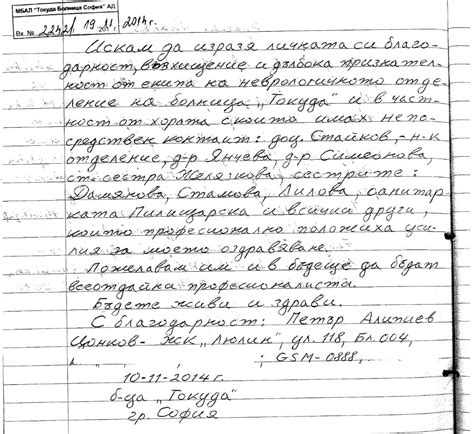 МБАЛ "Токуда Болница София" АД
Вх. № 22421 19.11.2014 г.
Искам да изразя личната си благо-
дарност, възхищение и дълбока признател-
ност от екипа на неврологичното отде-
ление на болница „Токуда" и в част-
ност от хората с които имах непо-
средствен контакт: доц. Стайков, - н-к
отделение, д-р Янчева, д-р Симеонова,
ст. сестра Желязкова, сестрите:
Дамянова, Стамова, Лилова, санитар
ката Пилищарска и всички други,
които професионално положиха уси-
лия за моето оздравяване.
Пожелавам им и в бъдеще да бъдат
всеотдайни професионалиста.
Бъдете живи и здрави.
С благодарност: Петър Алипиев
Цонков - жк „Люлин", ул. 118, Бл. 004,
; GSM-0888,
10-11-2014 г.
б-ца "Токуда"
гр. София